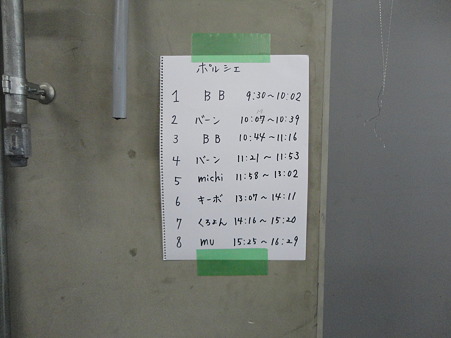 ポルシェ
1 BB 9:30~10:02
2 バーン 10:07~10:39
3 BB 10:44~11:16
4 バーン 11:21~11:53
5 michi 11:58~13:02
6 キーボ 13:07~14:11
7 くろよん 14:16~15:20
8 mu 15:25~16:29